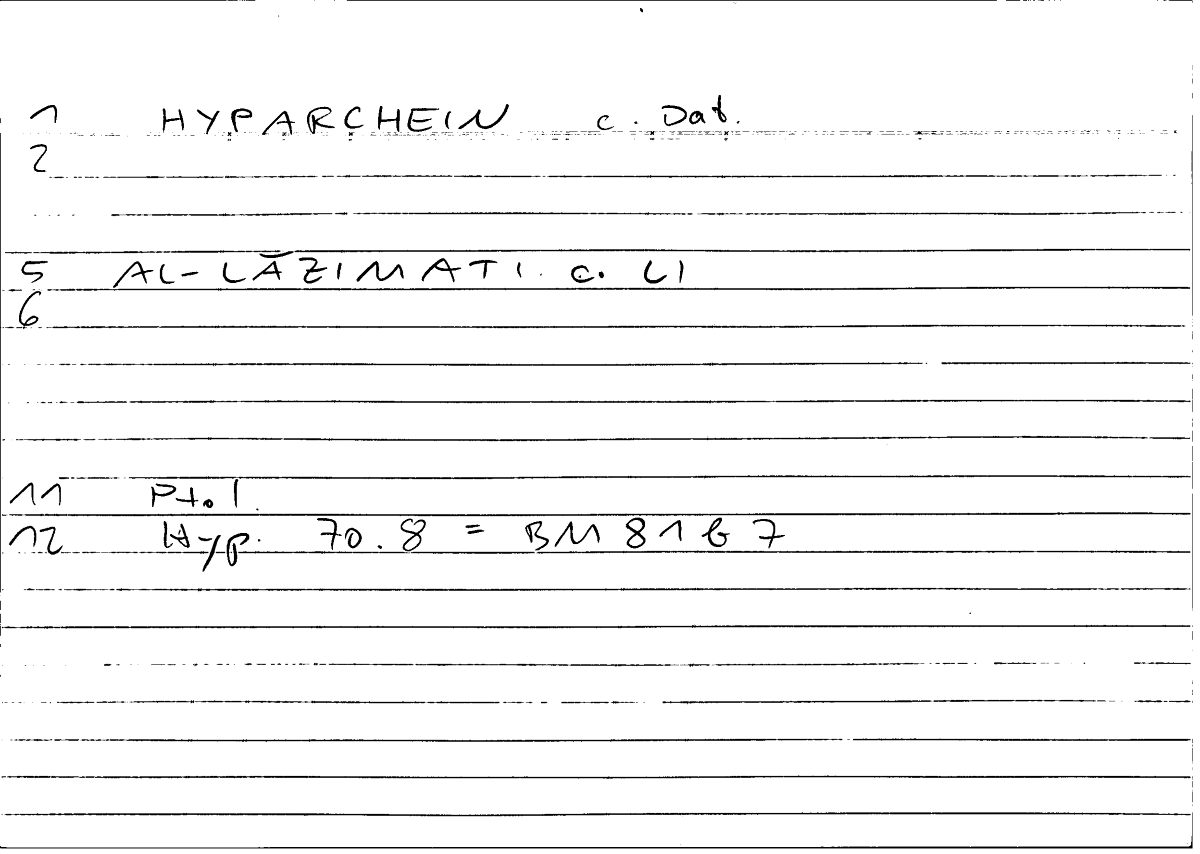 1 HYPARCHEIN c. Dat.
2
5 AL-LĀZIMATI. c. LI
6
11 Ptol.
12 Hyp. 70.8 = BM 81b7